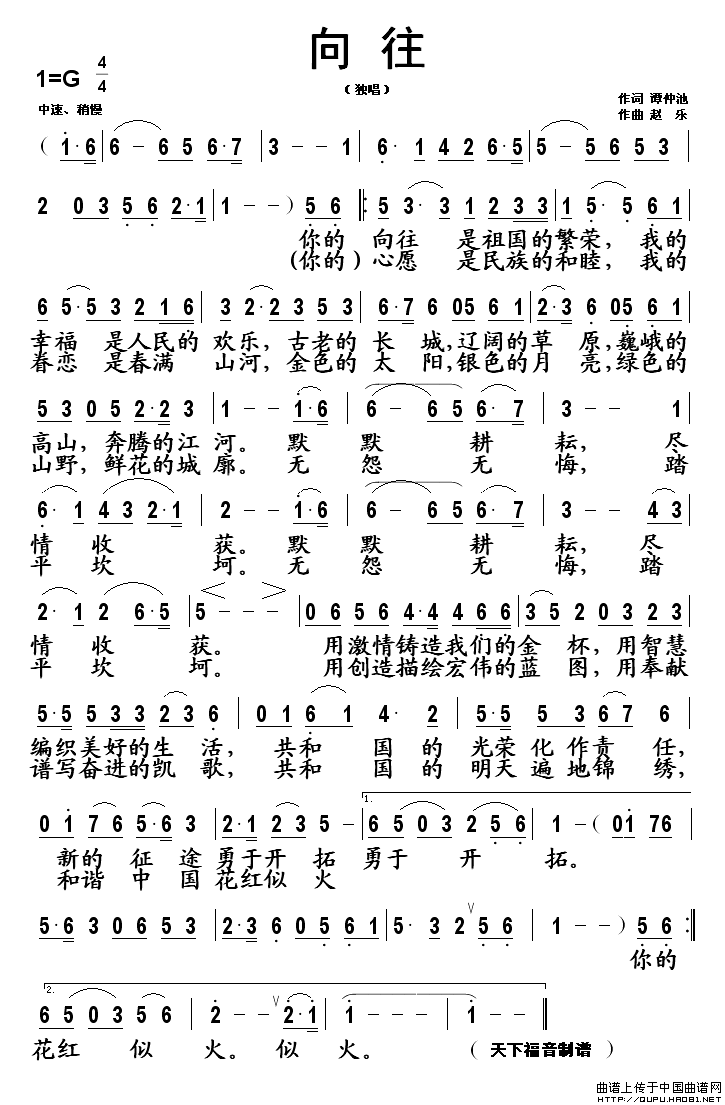 向 往
(独唱)
1=G 4/4
中速、稍慢
作词 谭仲池
作曲 赵 乐
( 1·6 | 6 - 6 5 6·7 | 3 - - 1 | 6· 1 4 2 6·5 | 5 - 5 6 5 3 |
2 0 3 5 6 2·1 | 1 - - ) 5 6 ‖: 5 3· 3 1 2 3 3 | 1 5· 5 6 1 |
你的 向往 是祖国的繁荣, 我的
(你的) 心愿 是民族的和睦, 我的
6 5·5 3 2 1 6 | 3 2·2 5 3 | 6·7 6 05 6 1 | 2·3 6 05 6 1 |
幸福 是人民的 欢乐, 古老的 长 城,辽阔的草 原,巍峨的
眷恋 是春满 山河, 金色的 太 阳,银色的月 亮,绿色的
5 3 0 5 2·2 3 | 1 - - 1·6 | 6 - 6 5 6·7 | 3 - - 1 |
高山, 奔腾的江 河。 默 默 耕 耘, 尽
山野, 鲜花的城 廓。 无 怨 无 悔, 踏
6· 1 4 3 2·1 | 2 - - 1·6 | 6 - 6 5 6·7 | 3 - - 4 3 |
情 收 获。 默 默 耕 耘, 尽
平 坎 坷。 无 怨 无 悔, 踏
2· 1 2 6·5 | 5 - - - | 0 6 5 6 4·4 4 6 6 | 3 5 2 0 3 2 3 |
情 收 获。 用激情铸造我们的金 杯, 用智慧
平 坎 坷。 用创造描绘宏伟的蓝 图, 用奉献
5·5 5 3 3 2 3 6 | 0 1 6 1 4· 2 | 5·5 5 3 6 7 6 |
编织美好的生 活, 共和 国 的 光荣 化 作责 任,
谱写奋进的凯 歌, 共和 国 的 明天 遍 地锦 绣,
0 1 7 6 5·6 3 | 2·1 2 3 5 - | 1. 6 5 0 3 2 5 6 | 1 - ( 01 76 |
新的 征 途 勇于开 拓 勇于 开 拓。
和谐 中 国 花红似 火
5·6 3 0 6 5 3 | 2·3 6 0 5 6 1 | 5· 3 2 ∨ 5 6 | 1 - - ) 5 6 :‖
你的
2. 6 5 0 3 5 6 | 2 - - ∨ 2·1 | 1 - - - | 1 - - ‖
花红 似 火。 似 火。
( 天下福音制谱 )
曲谱上传于中国曲谱网
HTTP://QUPU.HAO81.NET